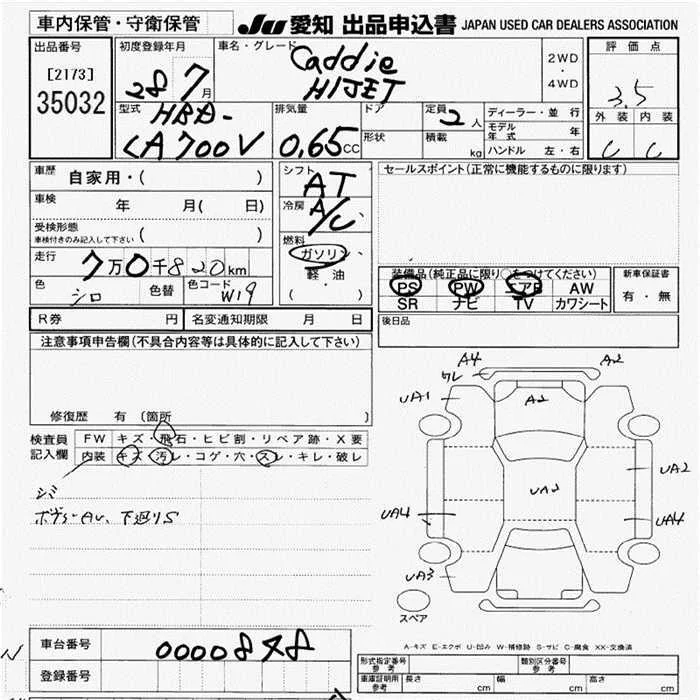 車内保管・守衛保管
JU 愛知 出品申込書 JAPAN USED CAR DEALERS ASSOCIATION
出品番号
[2173]
35032
初度登録年月
28 7月
車名・グレード
Caddie
HIJET
2WD
・
4WD
評価点
3.5
外装 内装
C C
型式
HBD-
LA700V
排気量
0.65cc
ドア
形状
定員
2人
積載
kg
ディーラー・並行
モデル年式 年
ハンドル 左・右
車歴
自家用・( )
車検
年 月( 日)
受検形態
車検付きのみ記入して下さい ( )
走行
7万0千820km
色
シロ
色替
色コード
W19
シフト
AT
冷房
A/C
燃料
ガソリン
・
軽油
・
( )
セールスポイント(正常に機能するものに限ります)
装備品(純正品に限り○をつけてください)
PS PW エアB AW
SR ナビ TV カワシート
新車保証書
有・無
R券 円 名変通知期限 月 日
後日品
注意事項申告欄(不具合内容等は具体的に記入して下さい)
修復歴 有 (箇所 )
検査員
記入欄
FW キズ・飛石・ヒビ割・リペア跡・X要
内装 キズ・汚レ・コゲ・穴・スレ・キレ・破レ
シミ
ボデーAU、下廻りS
A4
ワレ
A2
UA1
A2
UA2
UA3
UA4
UA4
UA3
スペア
A-キズ E-エクボ U-凹み W-補修跡 S-サビ C-腐食 XX-交換済
車台番号
0000848
登録番号
形式指定番号
参考
類別区分番号
参考
車庫証明用
参考
長さ cm 幅 cm 高さ cm